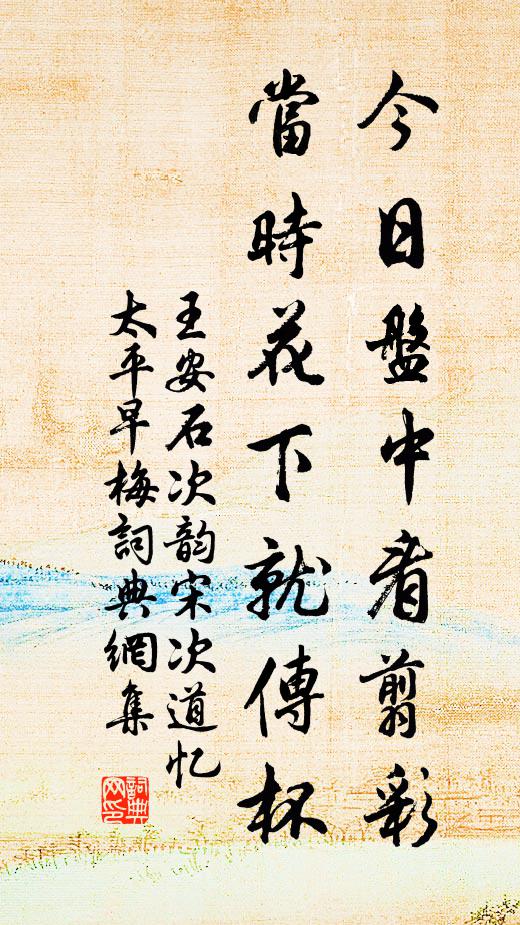 今日盤中看翦彩
當時花下就傳杯
王安石次韵宋次道忆
太平早梅詞典網集
詞典网印